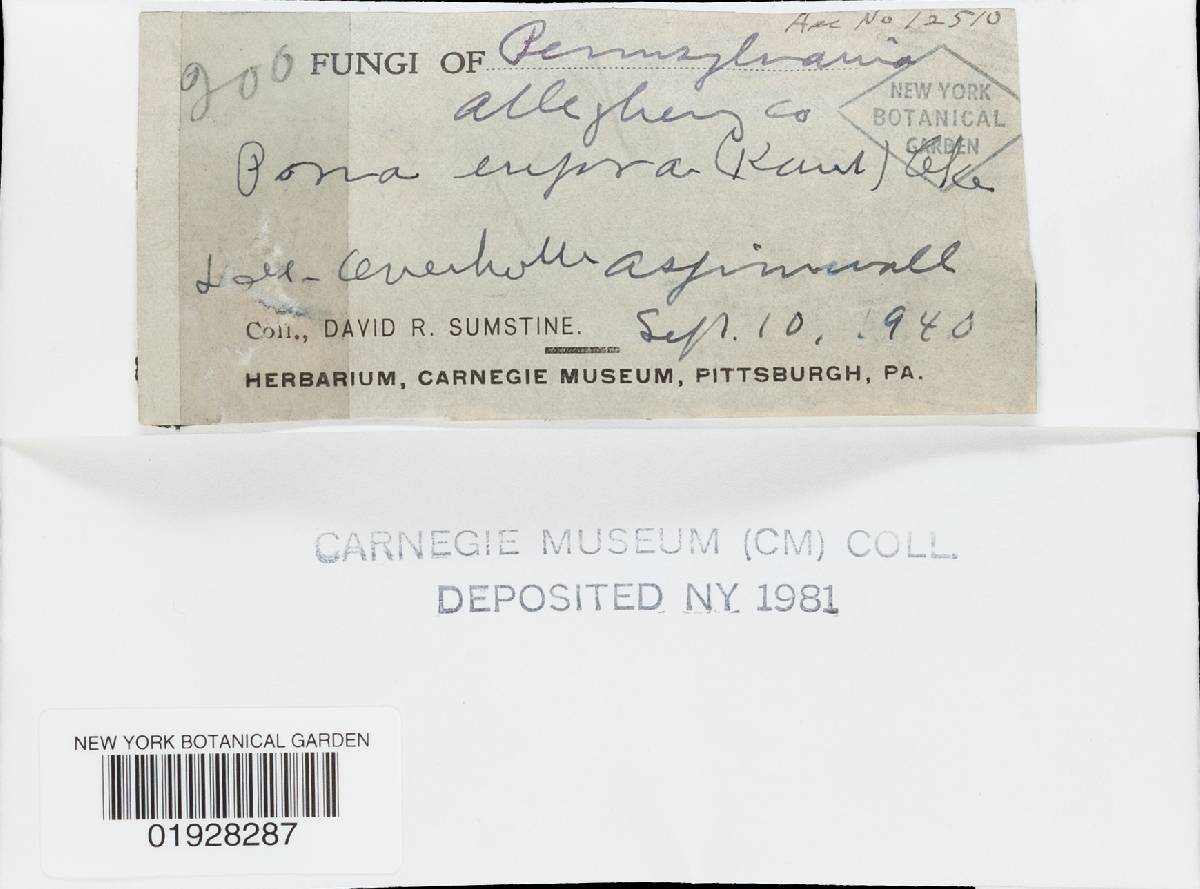 Acc No 12510
900 FUNGI OF Pennsylvania
Allegheny Co
NEW YORK
BOTANICAL
GARDEN
Poria eupora (Karst) Cke
Det - Overholts Aspinwall
Coll., DAVID R. SUMSTINE. Sept. 10, 1940
HERBARIUM, CARNEGIE MUSEUM, PITTSBURGH, PA.
CARNEGIE MUSEUM (CM) COLL.
DEPOSITED NY 1981
NEW YORK BOTANICAL GARDEN
01928287